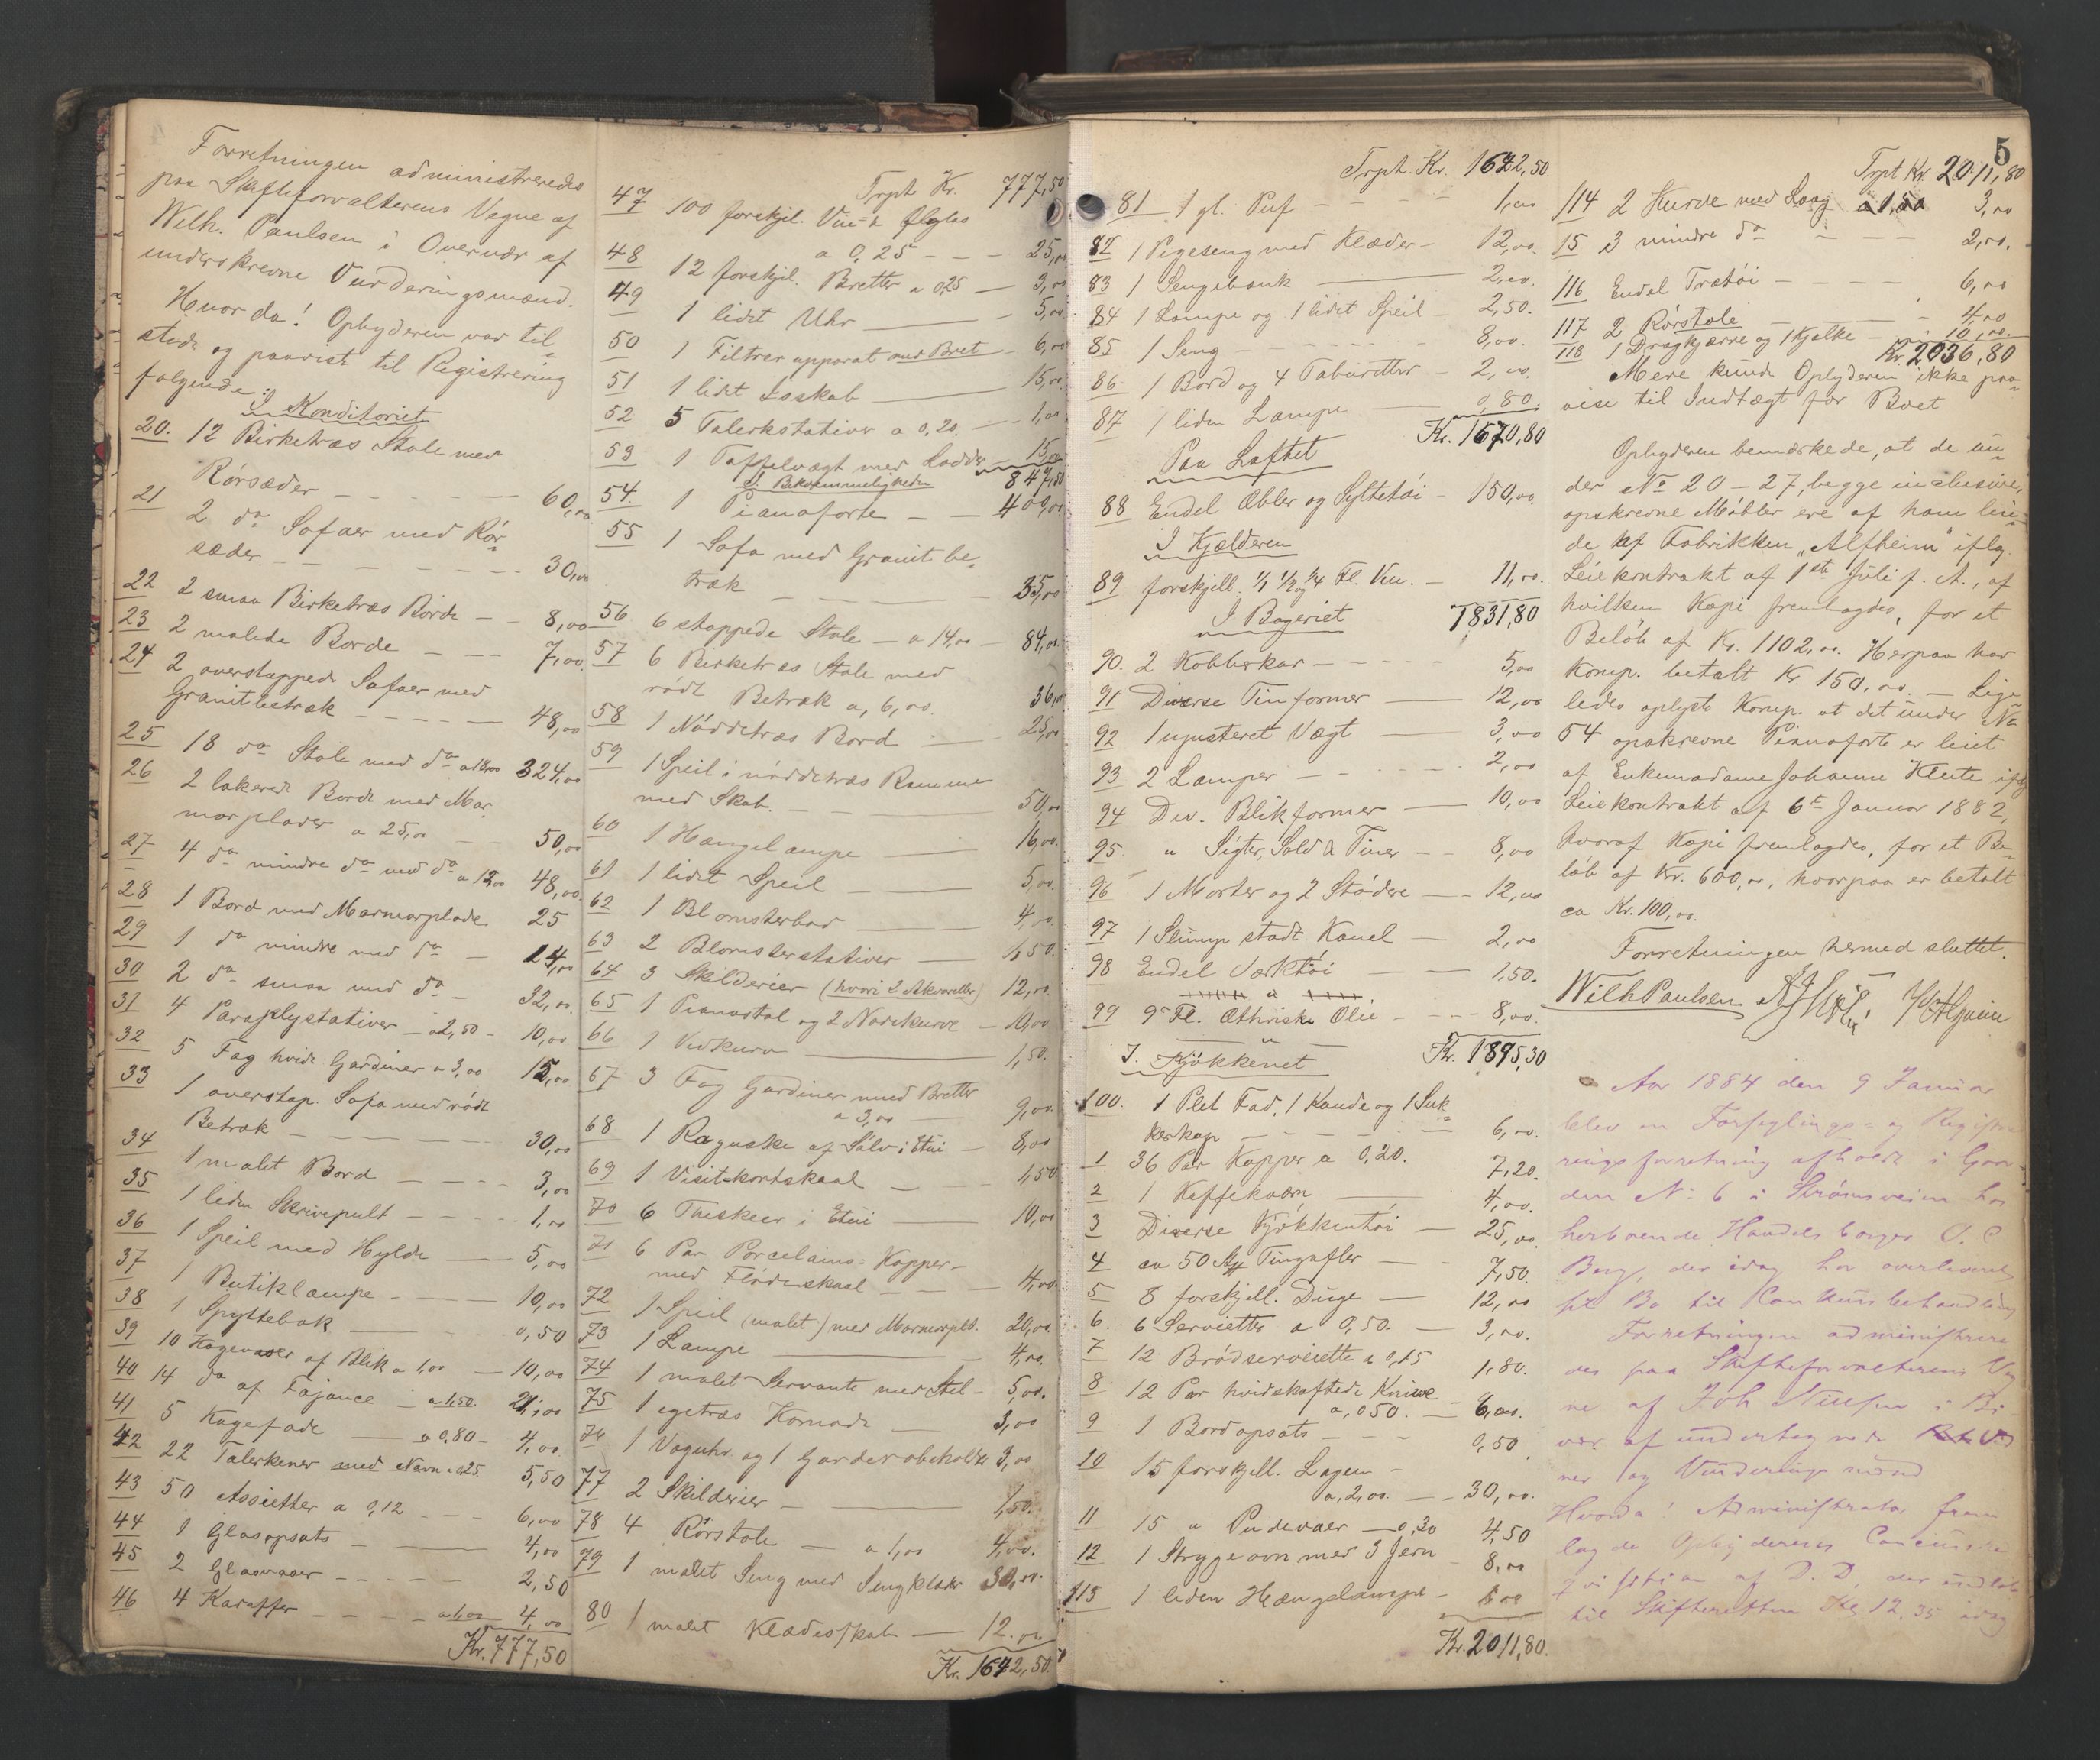 Forretningen administreredes
paa Skifteforvalterens Vegne af
Wilh. Paulsen i Overvær af
underskrevne Vurderingsmænd.
Hvorda! Opbyderen var til-
stede og paaviste til Registrering
følgende:
I Konditoriet
20. 12 Birketræs Stole med
Rørsæder - - - 60,00
21 2 do Sofaer med Rør-
sæder - - - 30,00
22 2 smaa Birketræs Borde - - 8,00
23 2 malede Borde - - - 7,00.
24 2 overstoppede Sofaer med
Granitbetræk - - - 48,00
25 18 do Stole med do a 18,00 324,00
26 2 lakerede Borde med Mar-
morplader a 25,00 - - 50,00
27 4 do mindre do med do a 12,00 48,00.
28 1 Bord med Marmorplade 25
29 1 do mindre med do - 14,00
30 2 do smaa med do - 32,00
31 4 Paraplystativer - a 2,50 - 10,00
32 5 Fag hvide Gardiner a 3,00 15,00
33 1 overstop. Sofa med rødt
Betræk - - - 30,00
34 1 malet Bord - - - 3,00
35 1 liden Skrivepult - - - 1,00
36 1 Speil med Hylde - 5,00
37 1 Butiklampe - - 10,00
38 1 Spyttebak - 0,50
39 10 Kagevaser af Blik a 1,00 - 10,00
40 14 do af Fajance - a 1,50. 21,00
41 5 Kagefade - a 0,80 - 4,00
42 22 Talerkener med Navn a 25 5,50
43 50 Assietter a 0,12 - - - 6,00
44 1 Glasopsats - 4,00
45 2 Glasvaser - - - 2,50
46 4 Karaffer - - - a 1,00 4,00
Kr. 777,50
Trpt Kr. 777,50
47 100 forskjl. Vin- & Ølglas
a 0,25 - - - 25,00
48 12 forskjl. Bretter a 0,25 - 3,00
49 1 lidet Uhr - 5,00
50 1 Filtrerapparat med Bret - 6,00
51 1 lidet Isskab - 15,00
52 5 Talerkstativer a 0,20. - 1,00
53 1 Taffelvægt med Lodder 15,00
847,50
I. Bekvemmeligheden
54. 1 Pianoforte - - 400,00
55 1 Sofa med Granit be-
træk - 35,00
56. 6 stoppede Stole - a 14,00 - 84,00
57 6 Birketræs Stole med
rødt Betræk a, 6,00. 36,00
58 1 Nøddetræs Bord - 25,00
59 1 Speil i nøddetræs Ramme
med Skab. - 50,00
60 1 Hængelampe 16,00.
61 1 lidet Speil - 5,00.
62 1 Blomsterbord 4,00.
63 2 Blomsterstativer - 1,50.
64 3 Skilderier (hvori 2 Akvareller) 12,00.
65 1 Pianostol og 2 Nodekurve - 10,00
66 1 Vedkurv 1,50.
67 3 Fag Gardiner med Bretter
a 3,00 9,00.
68 1 Raguske af Sølv i Etui - 8,00
69 1 Visitkortskaal - 1,50
70 6 Theskeer i Etui - 10,00
71 6 Par Porcelains-Kopper
med Flødeskaal - - - 4,00.
72 1 Speil (malet) med Marmorpl. 20,00.
73 1 Lampe 4,00.
74 1 malet Servante med Stel - 5,00.
75 1 egetræs Komode 3,00
76 1 Væguhr og 1 Garderobeholder 3,00
77 2 Skilderier - 1,50.
78 4 Rørstole - a 1,00 4,00.
79 1 malet Seng med Sengklæder 30,00.
80 1 malet Klædesskab - 12.00
Kr. 1642,50.
Trpt. Kr. 1642,50
81 1 gl. Puf - - - 1,00
82 1 Pigeseng med Klæder - 12,00.
83 1 Sengebænk 2,00.
84 1 Lampe og 1 lidet Speil - 2,50.
85 1 Seng - - - 8,00.
86. 1 Bord og 4 Taburetter - 2,00.
87 1 liden Lampe 0,80.
Kr. 1670,80
Paa Loftet
88 Endel Æbler og Syltetøi - 150,00
I Kjælderen
89 forskjell. 1/1 1/2 og 1/4 Fl. Vin. - 11,00.
1831,80
I Bageriet
90. 2 Kobberkar - - - 5,00
91 Diverse Tinformer - 12,00
92 1 ujusteret Vægt - 3,00
93 2 Lamper - - - 2,00
94 Div. Blikformer - 10,00
95 " Sigter, Sold & Tiner - - 8,00
96 1 Morter og 2 Stødere - - 12,00
97 1 Slump stødt Kanel - 2,00
98 Endel Værktøi - 1,50.
99 9 Fl. Æthriske Olie - - - 8,00.
Kr. 1895,30
I. Kjøkkenet
100. 1 Plet Fad, 1 Kande og 1 Suk-
kerkop - - - 6,00.
1 36 Par Kopper a 0,20. 7,20.
2 1 Kaffekværn 4,00.
3 Diverse Kjøkkentøi - 25,00.
4 ca 50 Stk Tingafler - - 7,50.
5 8 forskjell. Duge - 12,00
6. 6 Servietter a 0,50. - 3,00.
7 12 Brødserviette a 0,15 1,80.
8 12 Par hvidskaftede Knive
a, 050. - 6,00.
9 1 Bordopsats - - - 0,50
10 15 forskjell. Lagen -
a, 2,00. - - 30,00.
11 15 " Pudevaer - 0,30 4,50
12 1 Strygeovn med 3 Jern - 8,00
113 1 liden Hængelampe - 6 00
Kr. 2011,80.
5
Trpt Kr. 2011,80
114 2 Kurve med Laag a 1,50 3,00
15 3 mindre do - - - 2,00.
116 Endel Trætøi - - - - 6,00
117 2 Rørstole - 4,00
118 1 Dragkjærre og 1 Kjelke - 10,00.
Kr. 2036,80
Mere kunde Opbyderen ikke paa-
vise til Indtægt for Boet
Opbyderen bemærkede, at de un-
der No 20 - 27, begge inclusive,
opskrevne Møbler ere af ham lei-
de af Fabrikken "Alfheim" iflg.
Leiekontrakt af 1ste Juli f. A., af
hvilken Kopi fremlagdes, for et
Beløb af Kr. 1102,00. Herpaa har
Komp. betalt Kr. 150,00. - Lige-
ledes oplyste Komp. at det under No
54 opskrevne Pianoforte er leiet
af Enkemadame Johanne Klente iflg
Leiekontrakt af 6te Januar 1882,
hvoraf Kopi fremlagdes, for et Be-
løb af Kr. 600,00, hvorpaa er betalt
ca Kr. 100,00.
Forretningen hermed sluttet.
Wilh Paulsen
Aar 1884 den 9 Januar
blev en Forseglings- og Registre-
ringsforretning afholdt i Gaar-
den No 6 i Strømsveien hos
herboende Handelsborger O. C
Berg, der idag har overleveret
sit Bo til Konkursbehandling
Forretningen administrere
des paa Skifteforvalterens Veg
ne af Joh Nielsen i Bi
vær af undertegnede Vid
ner og Vurderingsmænd
Hvorda! Administrator frem
lagde Opbyderens Concurs
af D. D, der indkom
til Skifteretten Kl 12,35 idag